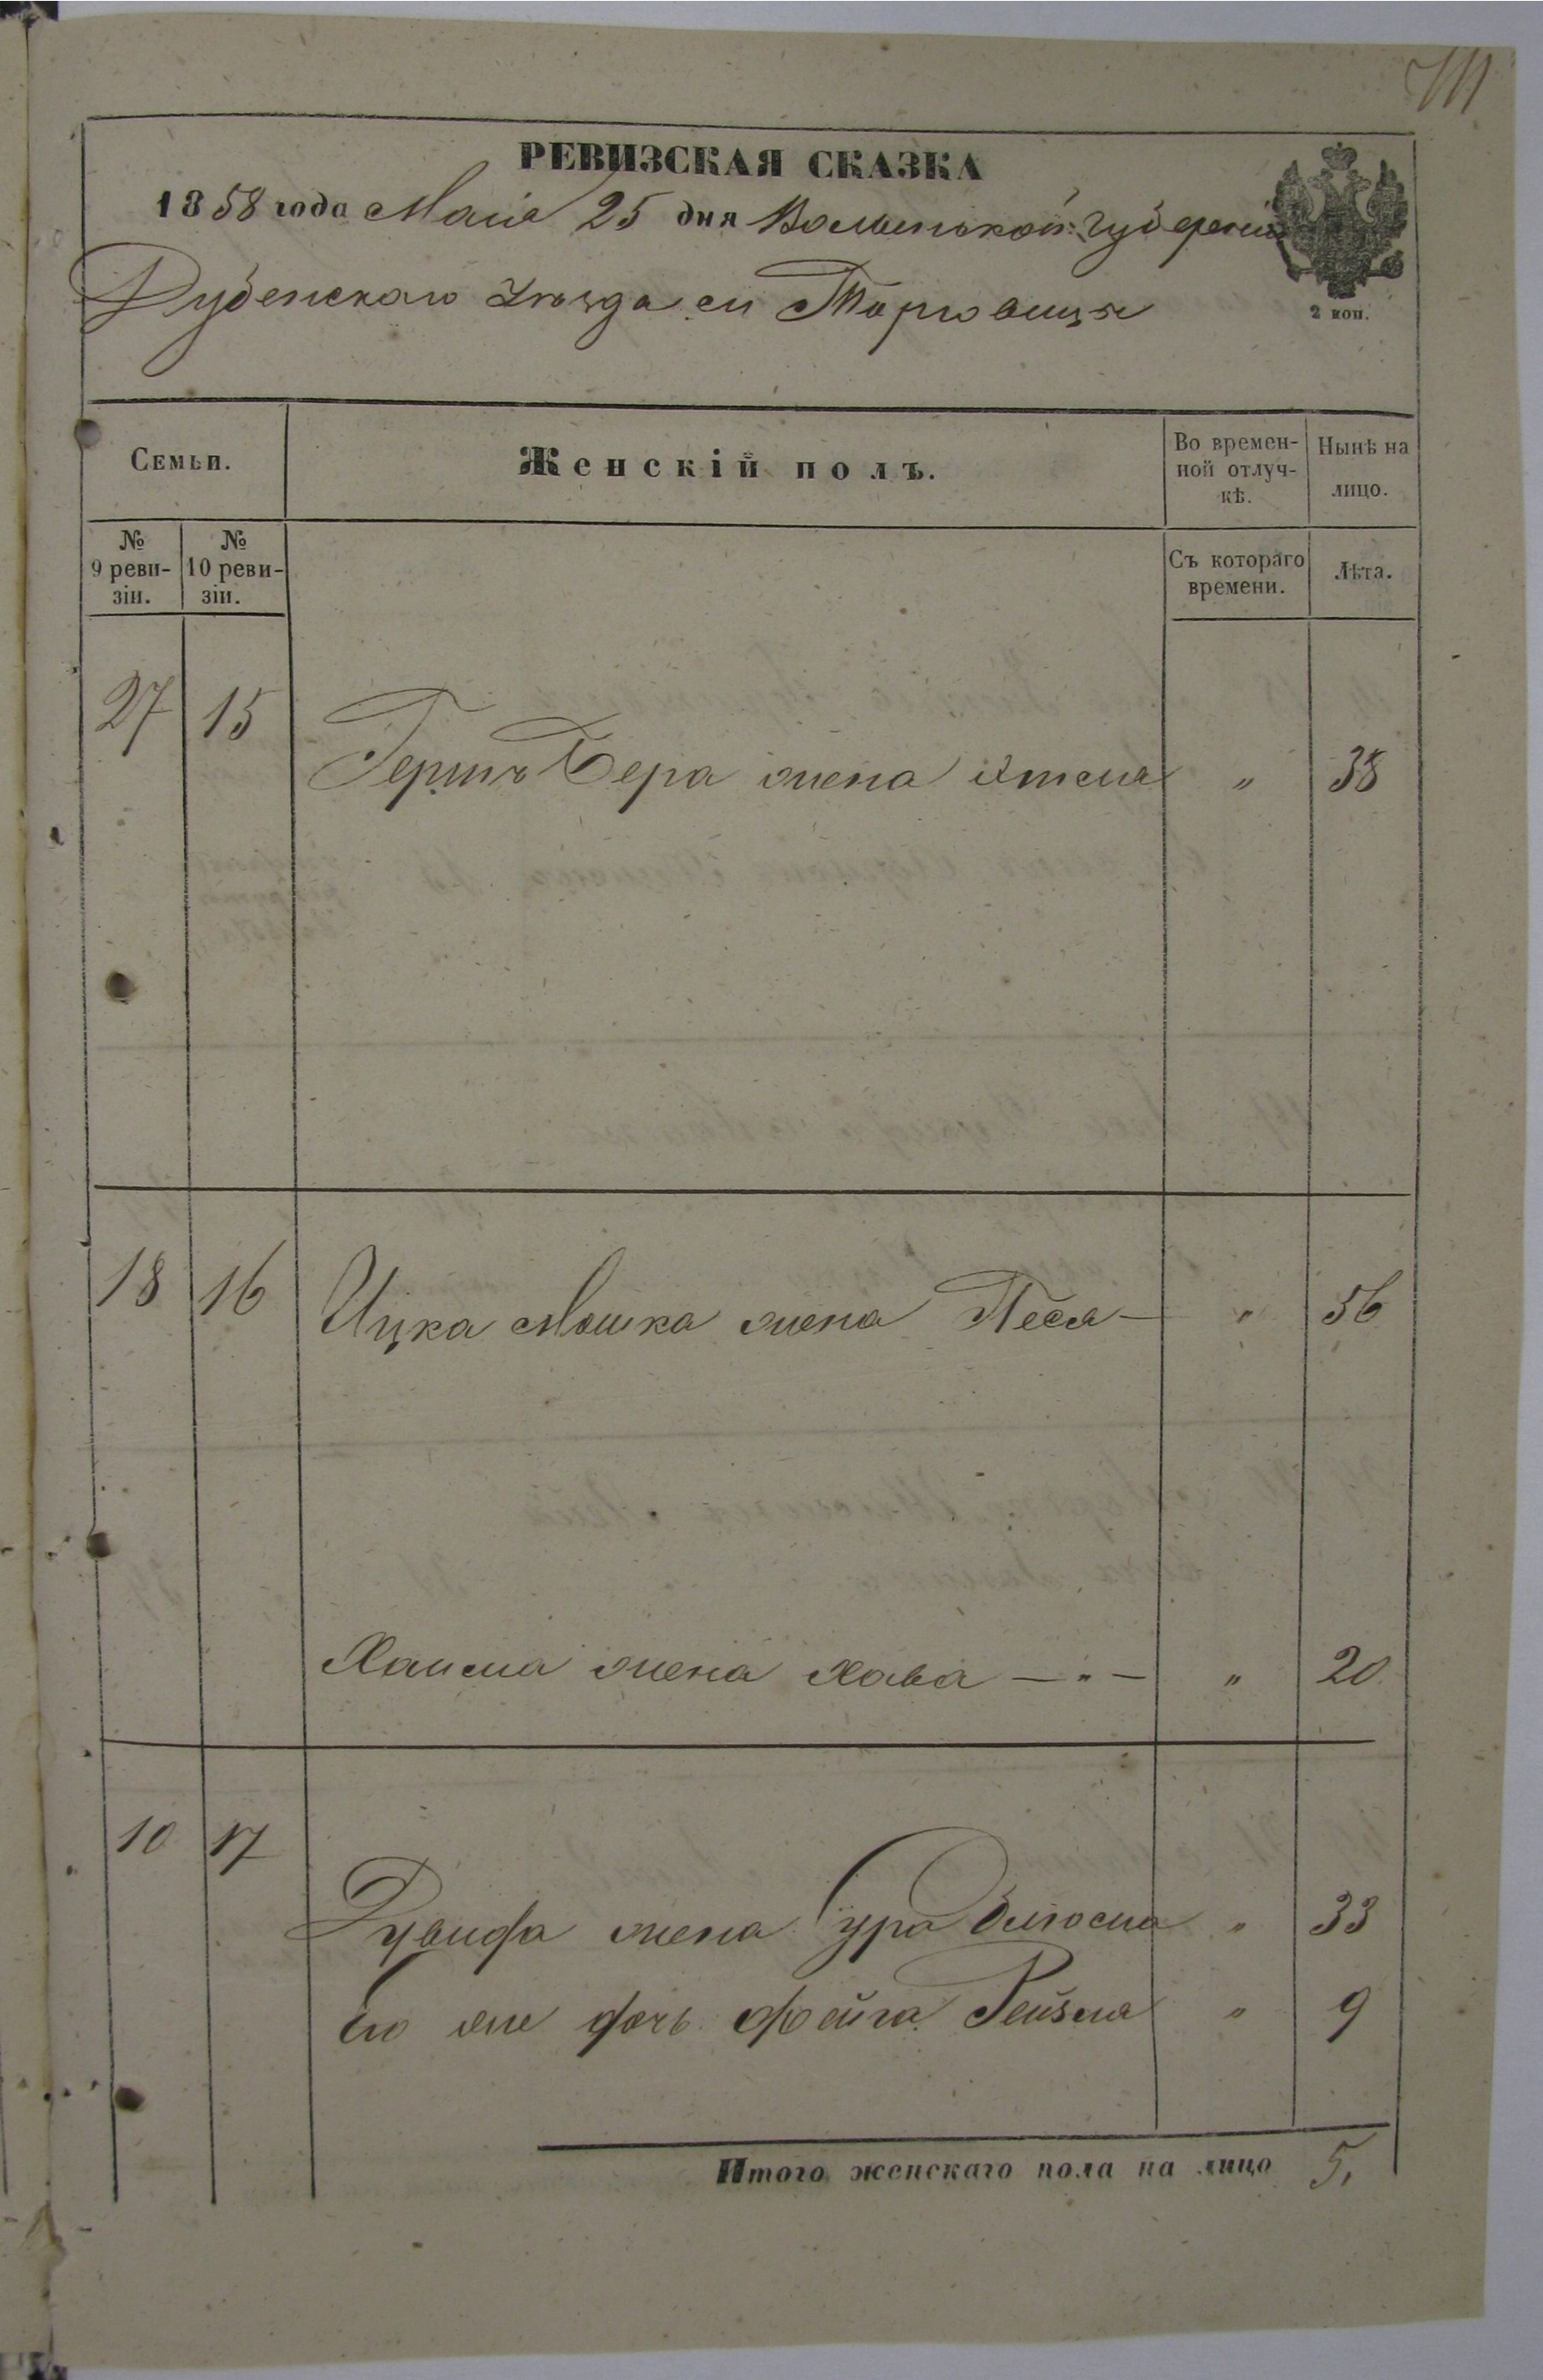 РЕВИЗСКАЯ СКАЗКА
1858 года Маія 25 дня Волынской Губерніи
Дубенскаго Уѣзда м Торговицы
2 коп.
Семьи.
Женскій полъ.
Во времен-
ной отлуч-
кѣ.
Нынѣ на
лицо.
№
9 реви-
зіи.
№
10 реви-
зіи.
Съ котораго
времени.
Лѣта.
27 15
Гершъ Бера жена Этля „ 38
18 16 Ицка Мошка жена Песя — „ 56
Хаима жена Хава — „ — „ 20
10 17
жена Сура „ 33
Его же дочь Фейга Рейзля „ 9
Итого женскаго пола на лицо 5,